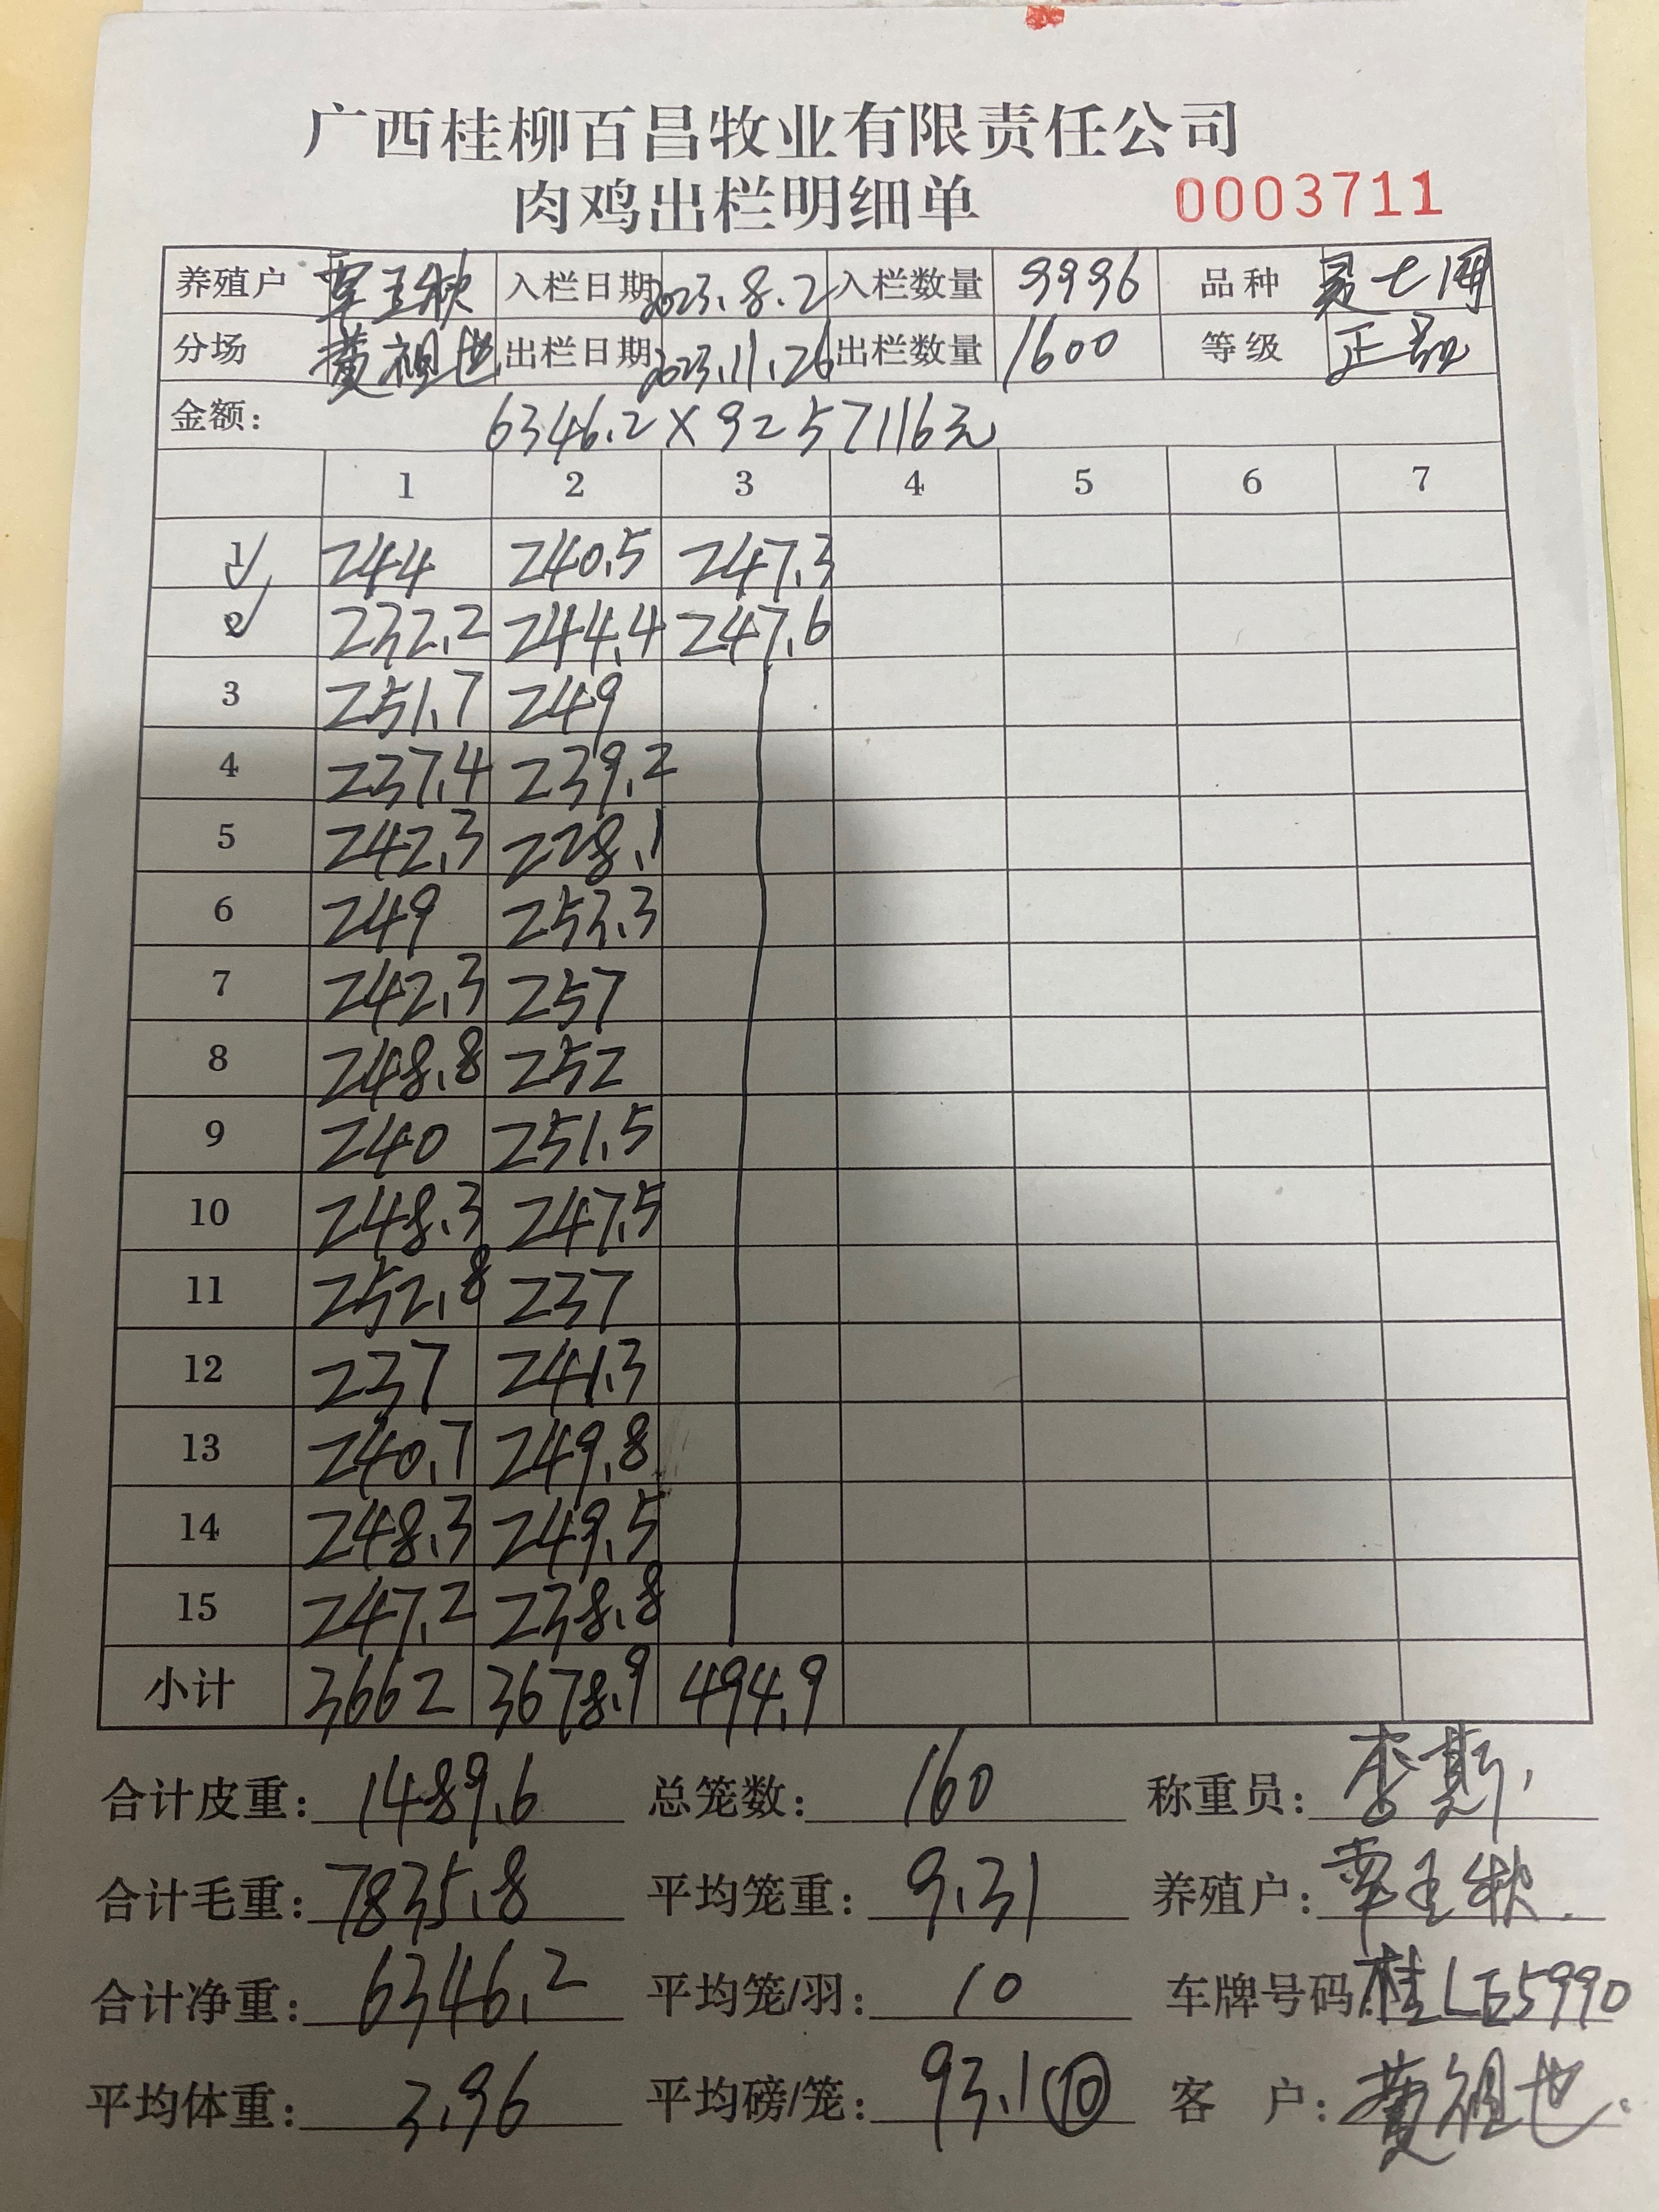 广西桂柳百昌牧业有限责任公司
肉鸡出栏明细单 0003711
养殖户 覃玉秋 入栏日期 2023.8.2 入栏数量 9996 品种
分场 黄祖世 出栏日期 2023.11.26 出栏数量 1600 等级 正品
金额: 6346.2×9 = 57116元
1 2 3 4 5 6 7
1 244 240.5 247.3
2 232.2 244.4 247.6
3 251.7 249
4 237.4 239.2
5 242.3 228.1
6 249 253.3
7 242.3 257
8 248.8 252
9 240 251.5
10 248.3 247.5
11 252.8 237
12 237 241.3
13 240.7 249.8
14 248.3 249.5
15 247.2 238.8
小计 3662 3678.9 494.9
合计皮重: 1489.6 总笼数: 160 称重员: 李斯
合计毛重: 7835.8 平均笼重: 9.31 养殖户: 覃玉秋
合计净重: 6346.2 平均笼/羽: 10 车牌号码: 桂LE5990
平均体重: 3.96 平均磅/笼: 93.1 ⑩ 客 户: 黄祖世